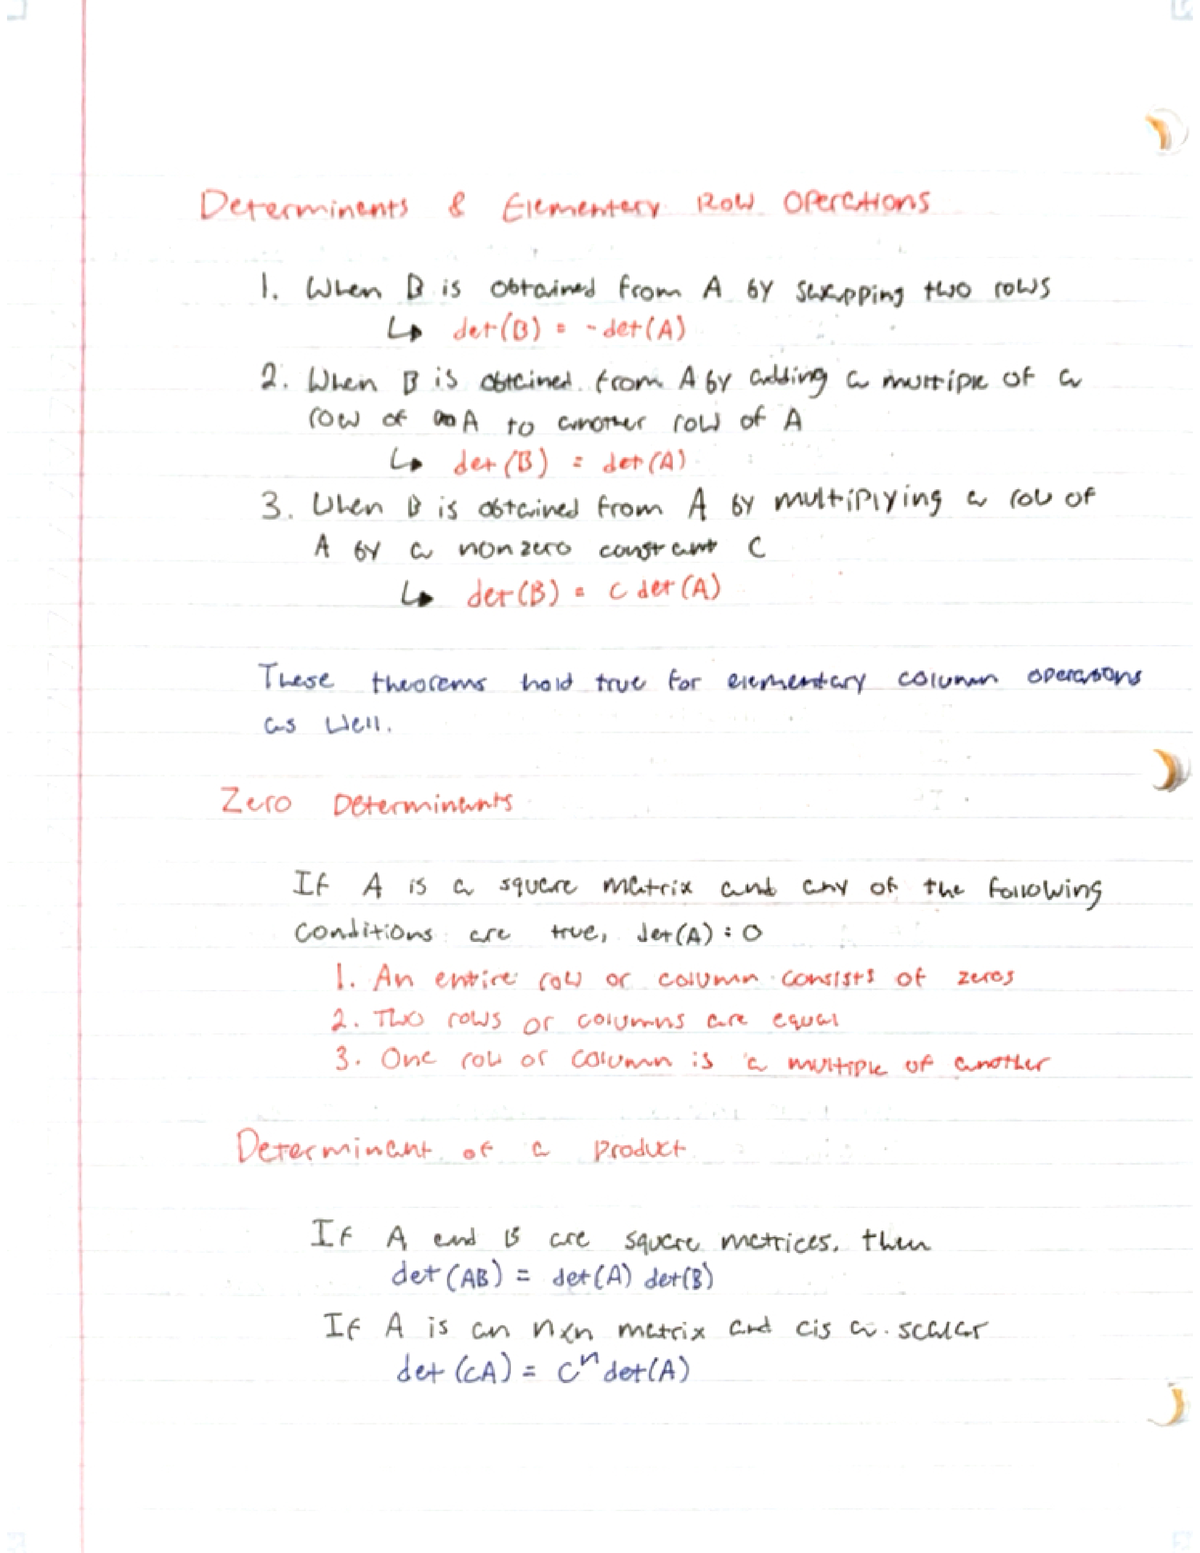 Determinants & Elementary Row Operations
1. When B is obtained from A by swapping two rows
↳ det(B) = -det(A)
2. When B is obtained from A by adding a multiple of a
row of A to another row of A
↳ det(B) = det(A)
3. When B is obtained from A by multiplying a row of
A by a nonzero constant C
↳ det(B) = c det(A)
These theorems hold true for elementary column operations
as well.
Zero Determinants
If A is a square matrix and any of the following
conditions are true, det(A) = 0
1. An entire row or column consists of zeros
2. Two rows or columns are equal
3. One row or column is a multiple of another
Determinant of a product
If A and B are square matrices, then
det(AB) = det(A) det(B)
If A is an nxn matrix and c is a scalar
det(cA) = cⁿ det(A)